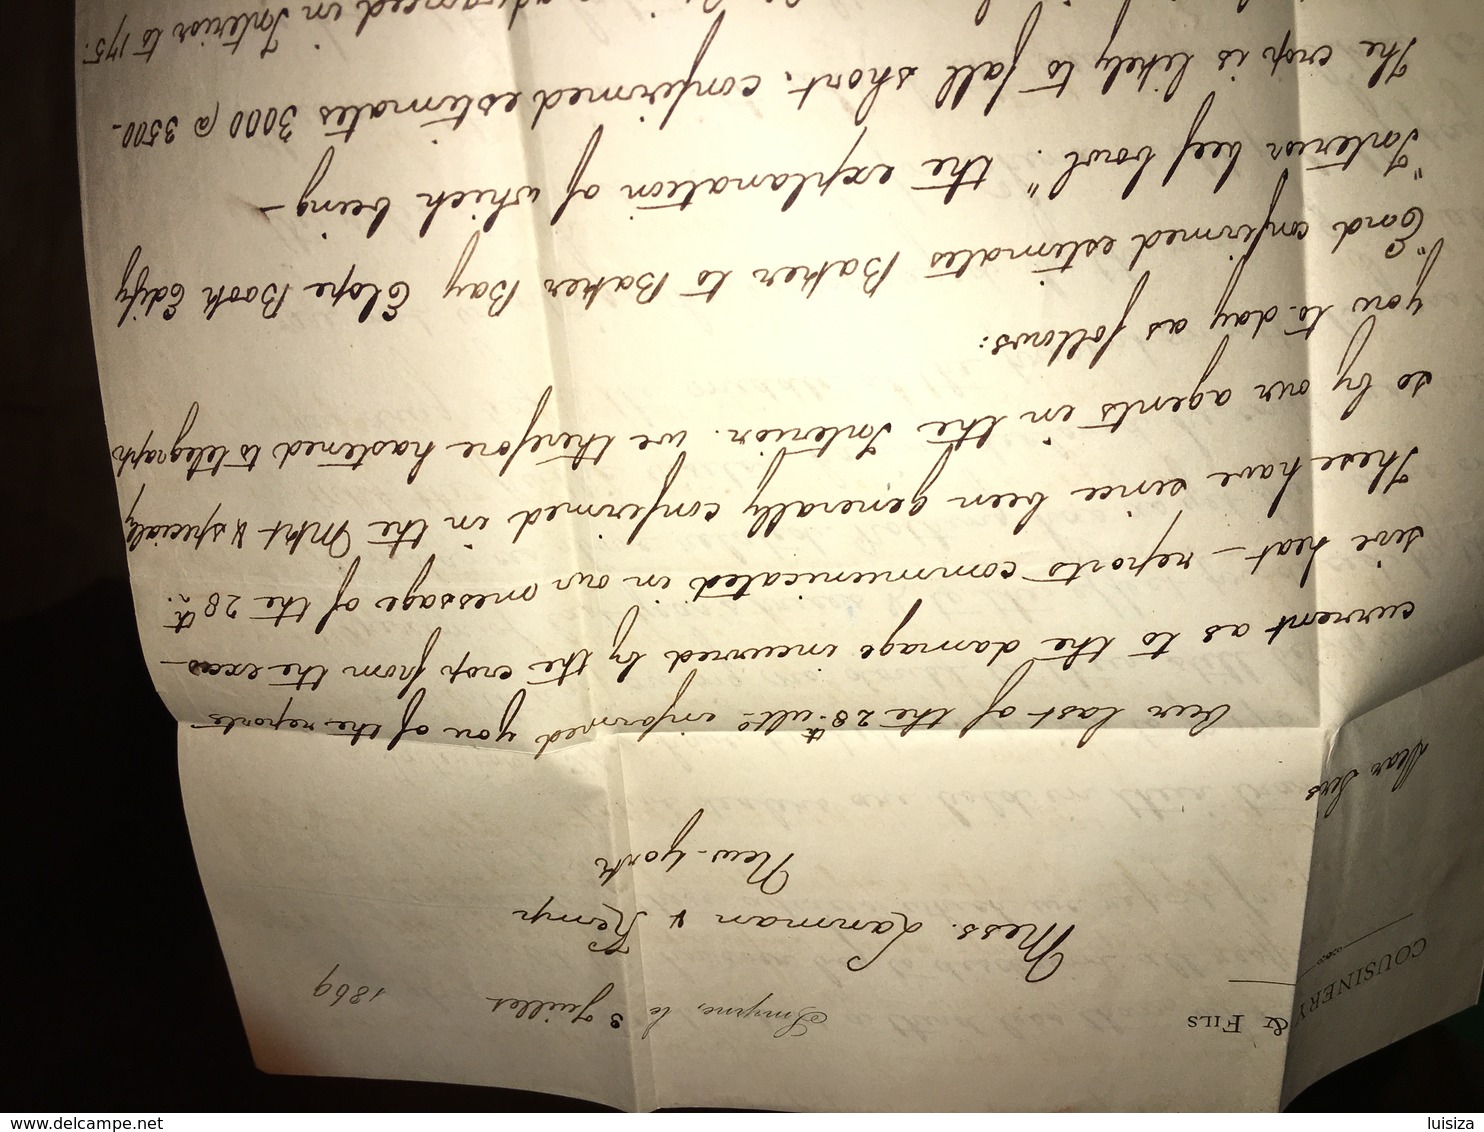 COUSINERY & FILS
Smyrne, le 3 Juillet 1869
Mess. Lanman & Kemp
New-York
Dear Sirs
Our last of the 28th ulto informed you of the reports
current as to the damage incurred by the crop from the exces-
sive heat - reports communicated in our message of the 28th.
These have since been generally confirmed in the Mkt & specially
so by our agents in the Interior. we therefore hastened to telegraph
you to-day as follows:
" confirmed estimates Baker to Baker Bay Elope Book Edify
"Interior beef bowl." the explanation of which being -
The crop is likely to fall short. confirmed estimates 3000 @ 3500-
advanced in Interior to 175.
www.delcampe.net
luisiza